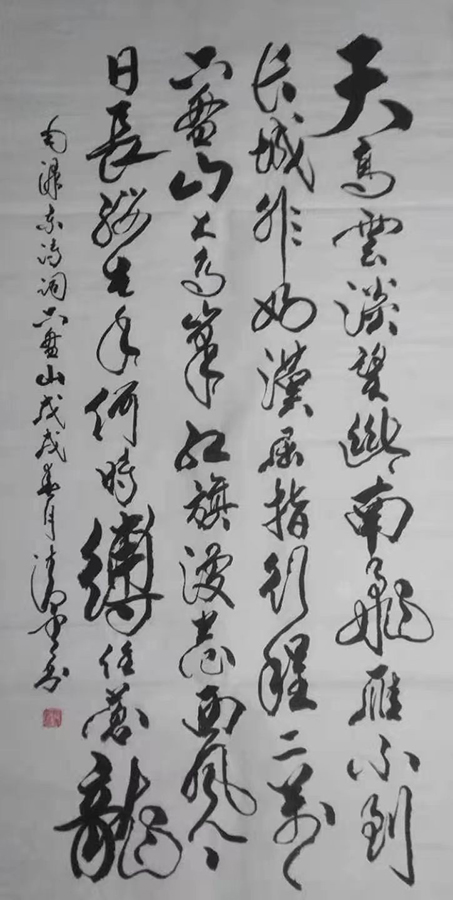 天高雲淡望斷南飛雁不到
长城非好漢屈指行程二萬
六盤山上高峯红旗漫卷西風今
日長纓在手何時縛住蒼龍
毛澤东诗词六盤山戊戌春月